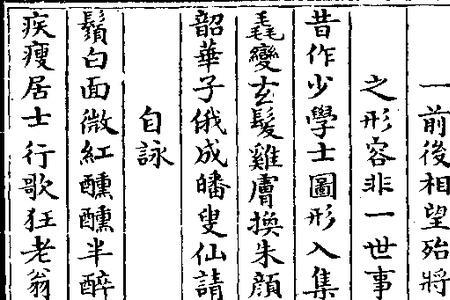 一前後相望殆將
之形容非一世事
昔作少學士圖形入集
毳變玄髮雞膚換朱顏
韶華子俄成皤叟仙請
自詠
鬚白面微紅醺醺半醉
疾瘦居士行歌狂老翁